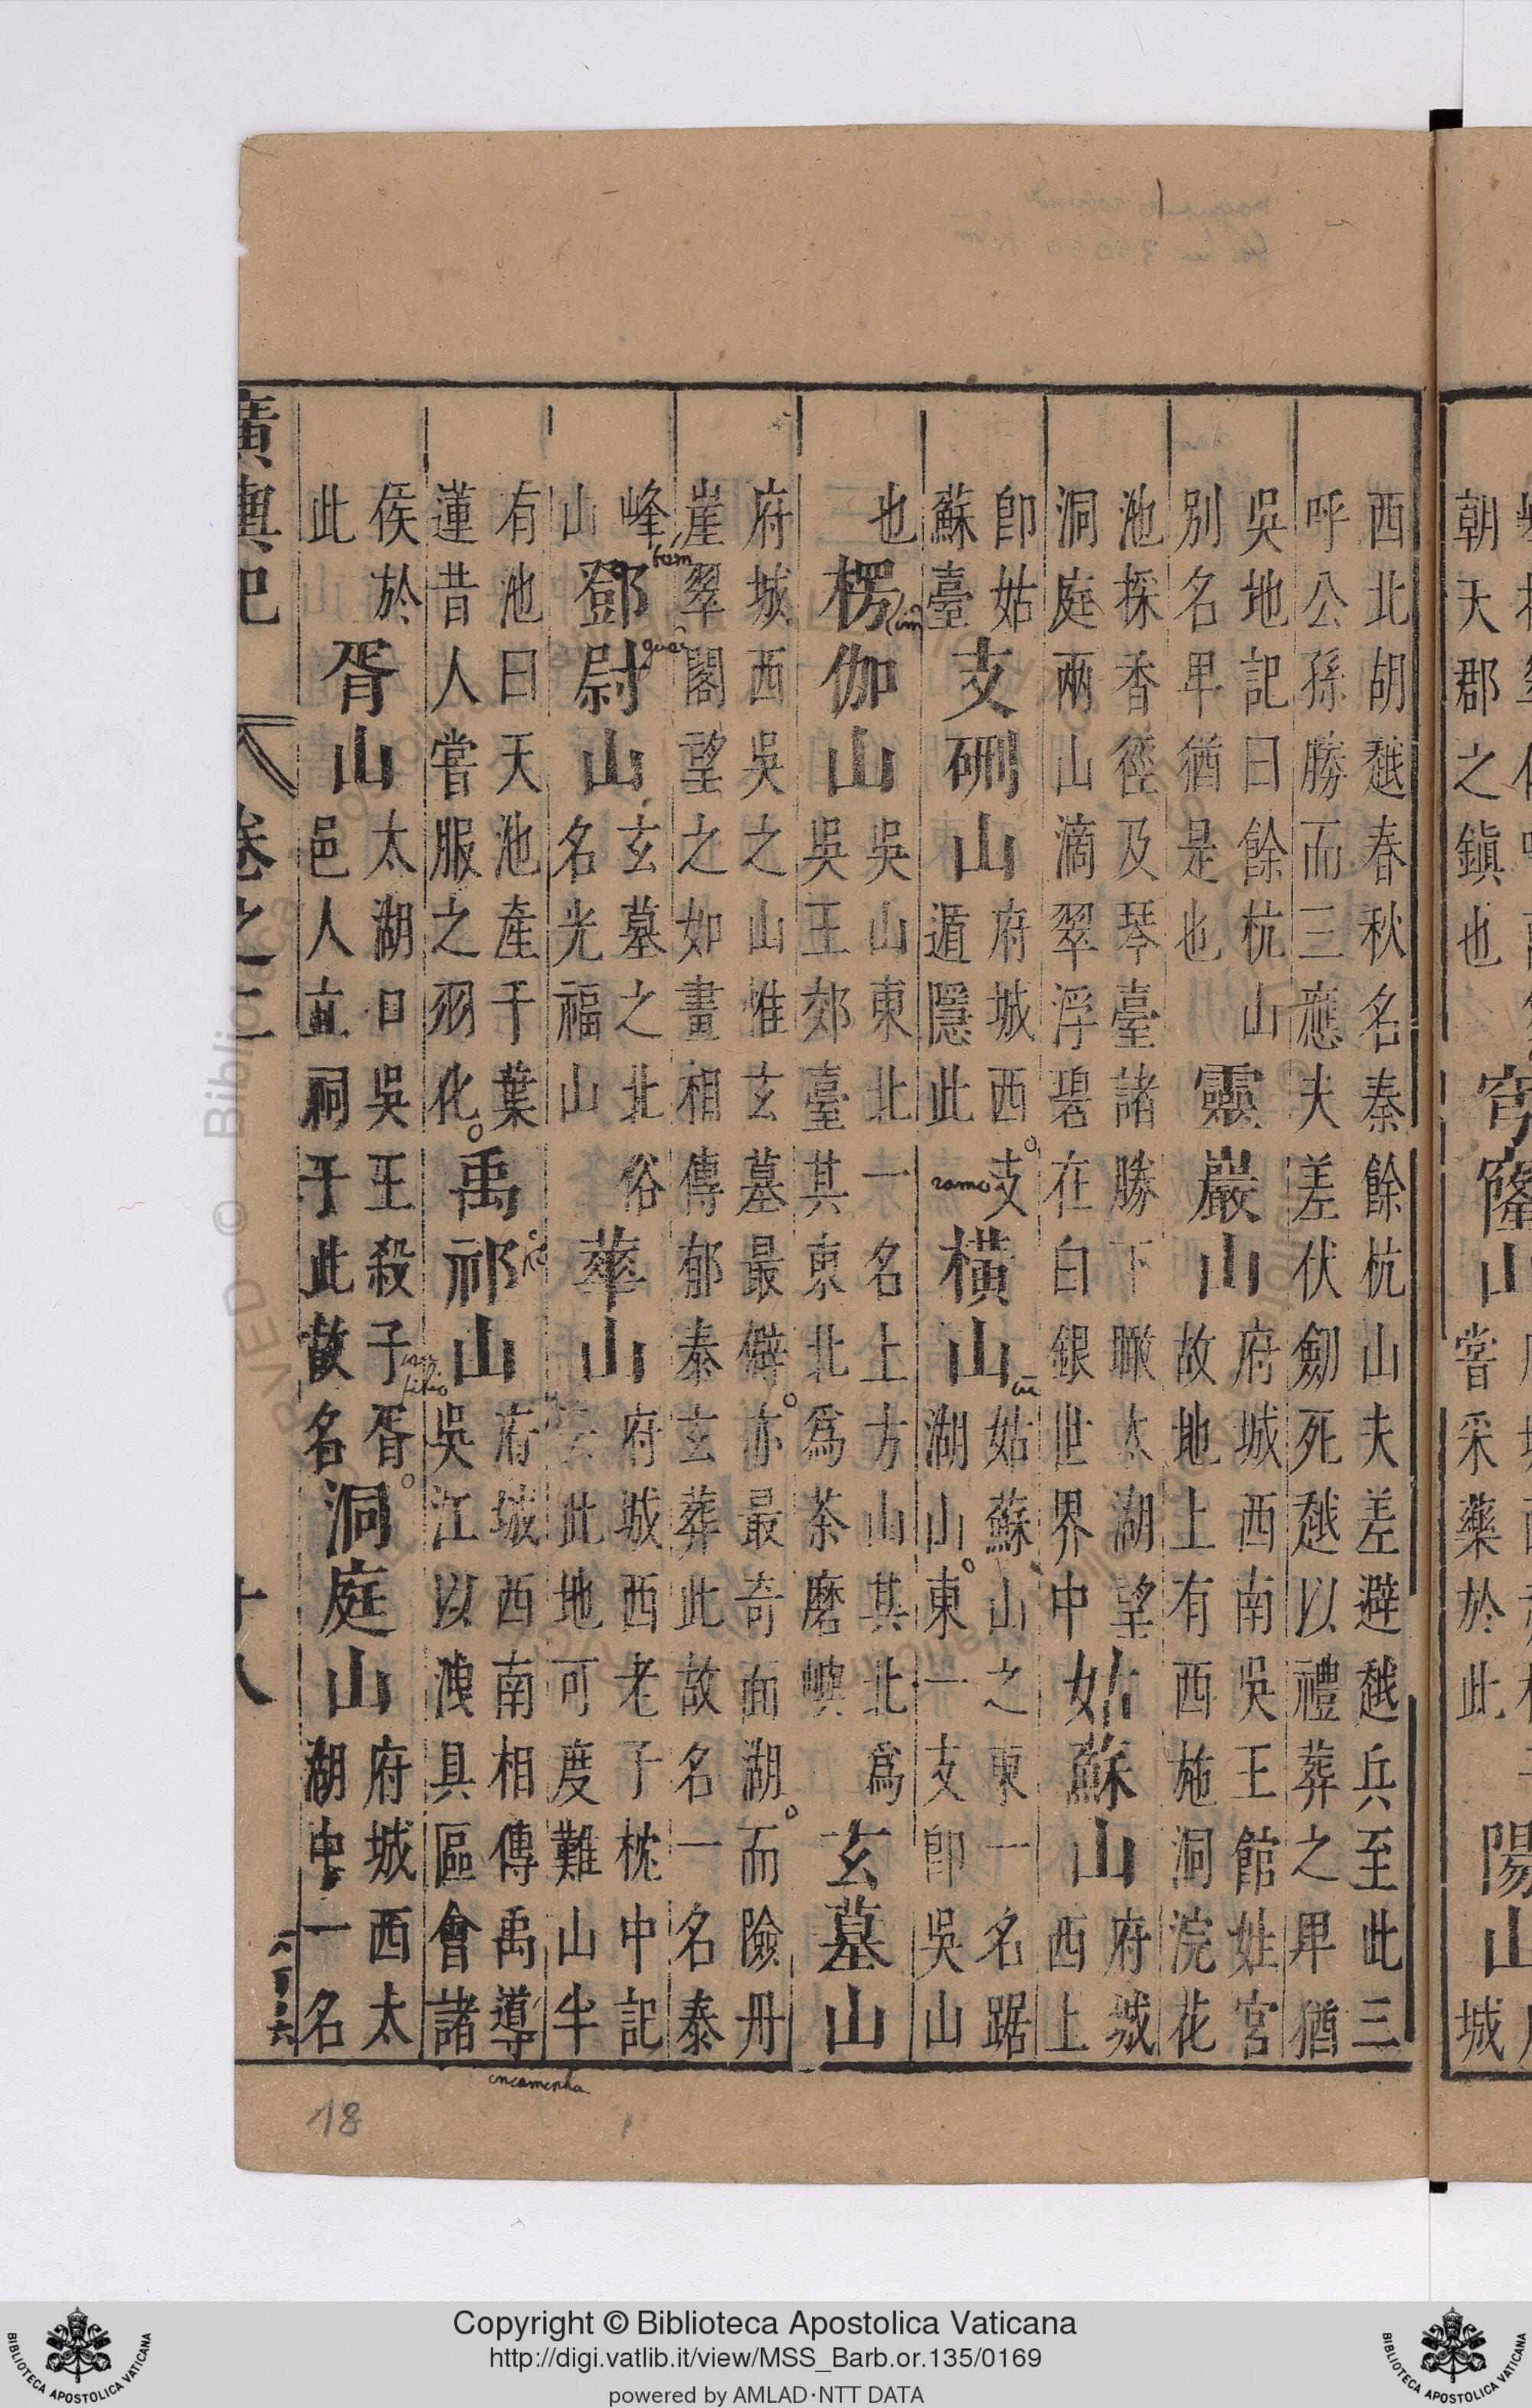 西北胡越春秋名秦餘杭山夫差避越兵至此三
呼公孫勝而三應夫差伏劒死越以禮葬之卑猶
吳地記曰餘杭山
別名卑猶是也
靈巖山
府城西南吳王館娃宮
故地上有西施洞浣花
池採香徑及琴臺諸勝下瞰太湖望
洞庭兩山滴翠浮碧在白銀世界中
姑蘇山
府城
西上
卽姑
蘇臺
支硎山
府城西支
遁隱此
橫山
姑蘇山之東一名踞
湖山東一支卽吳山
也
楞伽山
吳山東北一名上方山其北爲
吳王郊臺其東北爲茶磨嶼
玄墓山
府城西吳之山惟玄墓最僻亦最奇面湖而險丹
崖翠閣望之如畫相傳郁泰玄葬此故名一名泰
峰
山
鄧尉山
玄墓之北
名光福山
谷
華山
府城西老子枕中記
此地可度難山半
有池曰天池池產千葉
蓮昔人嘗服之羽化
禹祁山
府城西南相傳禹導
吳江以洩具區會諸
侯於
此
胥山
太湖口吳王殺子胥
邑人立祠于此故名
洞庭山
府城西太
湖中一名
廣輿記
卷之二
十八
朝天郡之鎮也
穹窿山
嘗采藥於此
陽山
城
ramo
encaminha
filho
18
Copyright © Biblioteca Apostolica Vaticana
http://digi.vatlib.it/view/MSS_Barb.or.135/0169
powered by AMLAD·NTT DATA
BIBLIOTECA APOSTOLICA VATICANA
BIBLIOTECA APOSTOLICA VATICANA